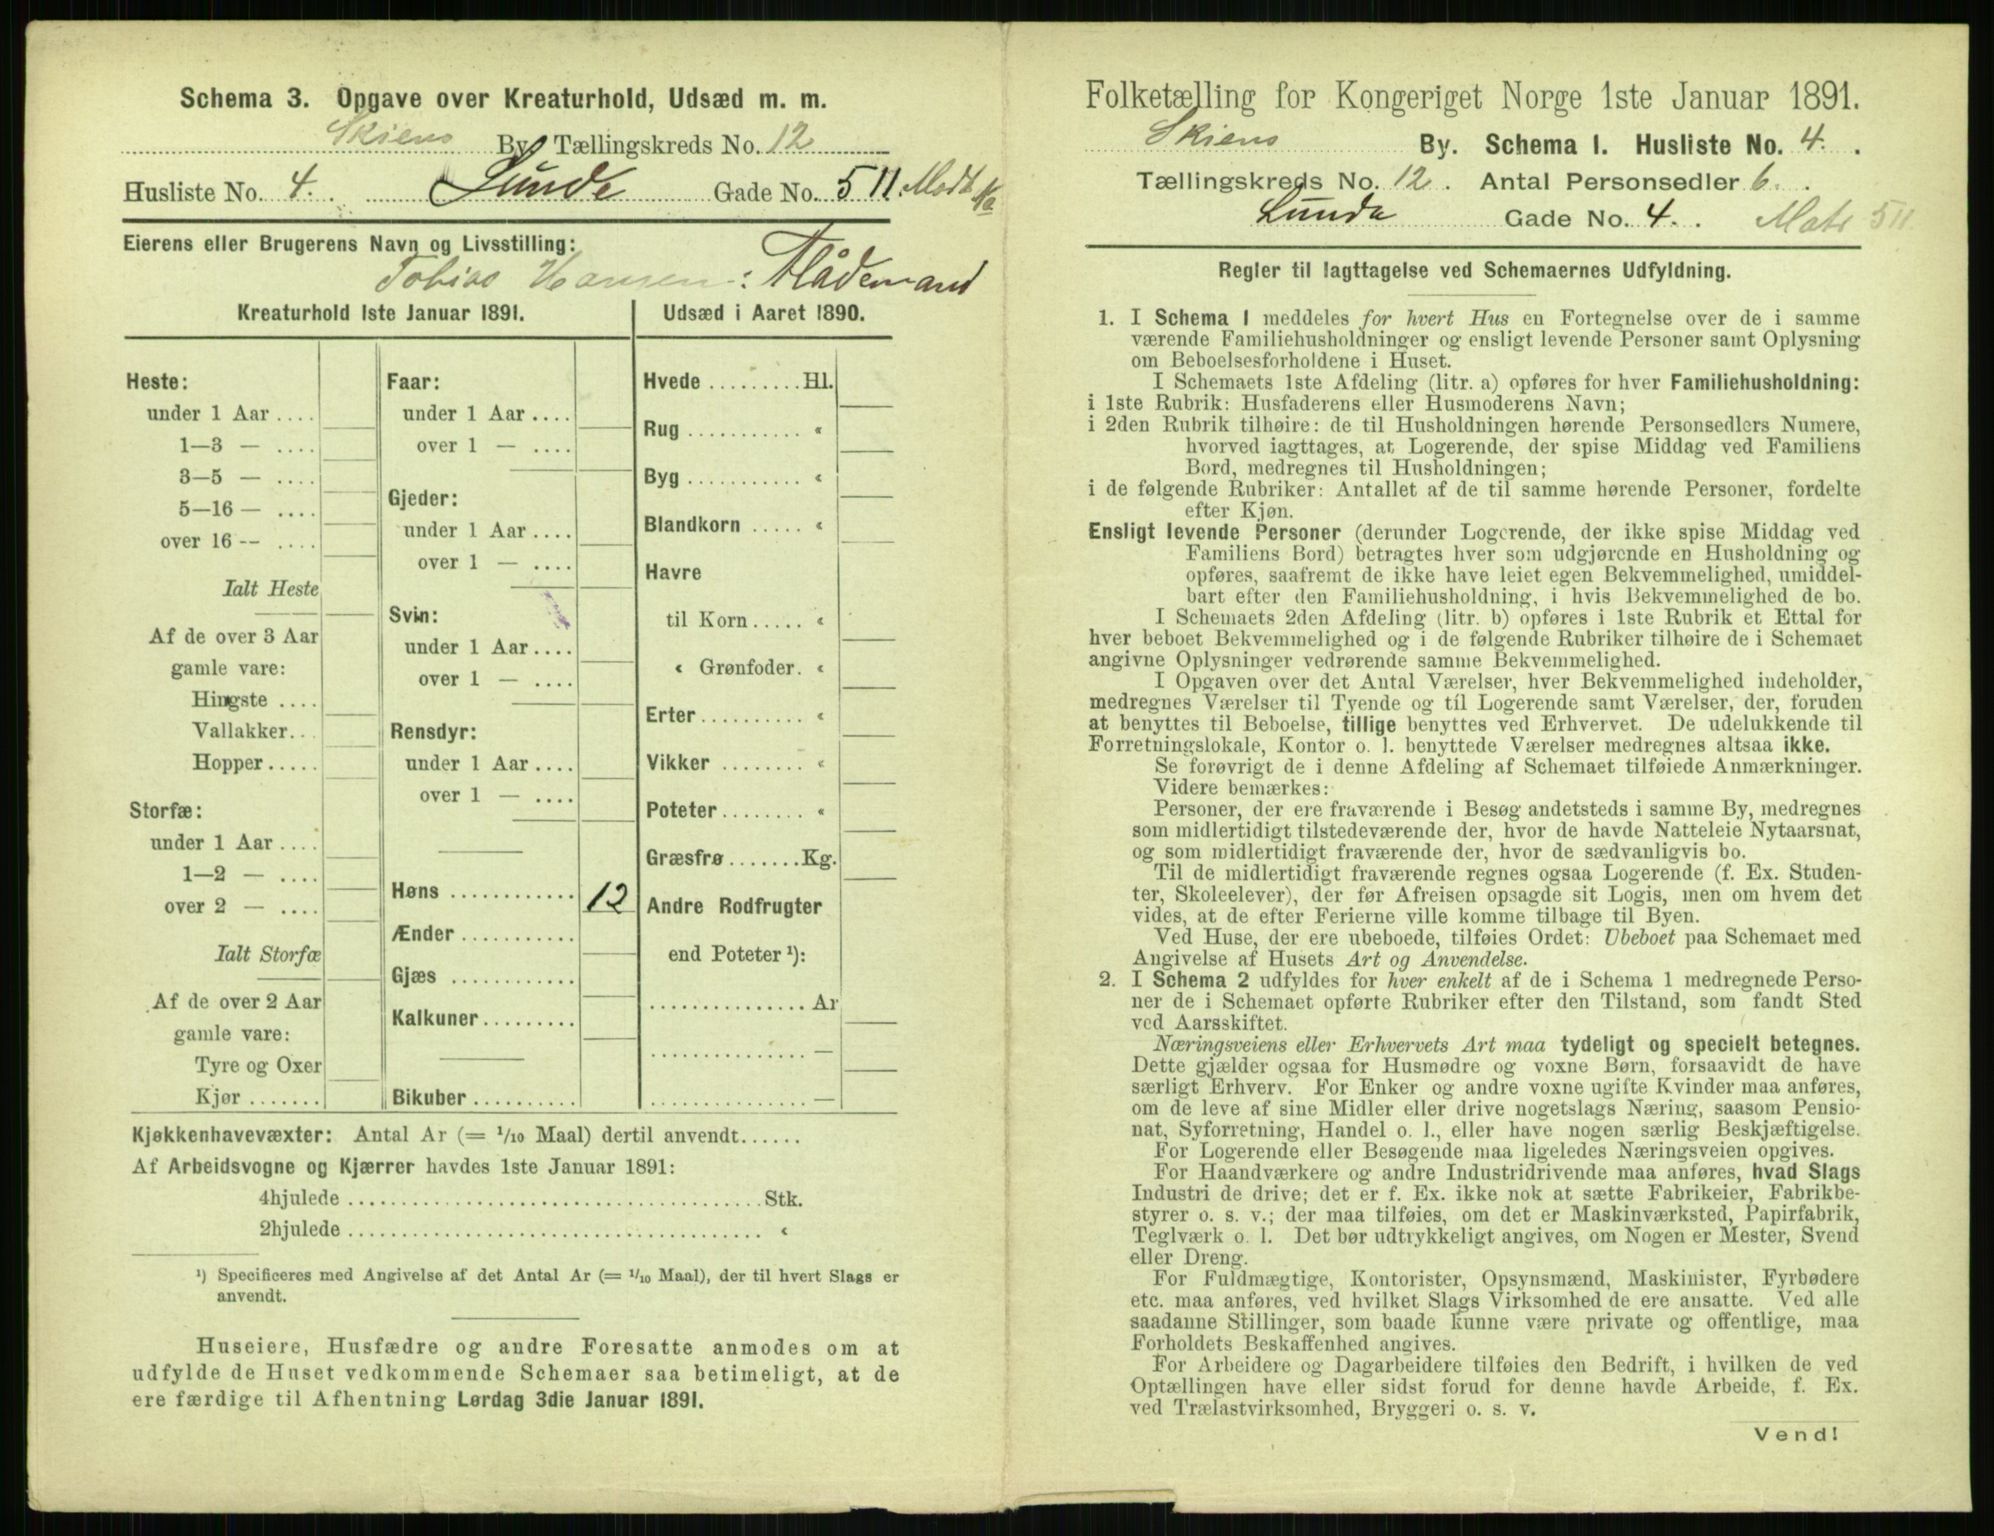 Schema 3. Opgave over Kreaturhold, Udsæd m. m.
Skiens By Tællingskreds No. 12
Husliste No. 4. Lunde Gade No. 511.
Eierens eller Brugerens Navn og Livsstilling:
Tobias Hansen: Flådemand
Kreaturhold 1ste Januar 1891.
Heste:
under 1 Aar ....
1—3 — ....
3—5 — ....
5—16 — ....
over 16 -- ....
Ialt Heste
Af de over 3 Aar
gamle vare:
Hingste ....
Vallakker...
Hopper.....
Storfæ:
under 1 Aar ....
1—2 — ....
over 2 — ....
Ialt Storfæ
Af de over 2 Aar
gamle vare:
Tyre og Oxer
Kjør .......
Faar:
under 1 Aar ....
over 1 — ....
Gjeder:
under 1 Aar ....
over 1 — ....
Svin:
under 1 Aar....
over 1 — ....
Rensdyr:
under 1 Aar....
over 1 — ....
Høns ............ 12
Ænder ...........
Gjæs ............
Kalkuner.........
Bikuber ..........
Udsæd i Aaret 1890.
Hvede .........Hl.
Rug ........... «
Byg ........... «
Blandkorn ..... «
Havre
til Korn ..... «
« Grønfoder. «
Erter.......... «
Vikker ........ «
Poteter ........ «
Græsfrø .......Kg.
Andre Rodfrugter
end Poteter ¹):
............... Ar
............... —
............... —
Kjøkkenhavevæxter: Antal Ar (= 1/10 Maal) dertil anvendt......
Af Arbeidsvogne og Kjærrer havdes 1ste Januar 1891:
4hjulede ......................................Stk.
2hjulede ...................................... «
¹) Specificeres med Angivelse af det Antal Ar (= 1/10 Maal), der til hvert Slags er
anvendt.
Huseiere, Husfædre og andre Foresatte anmodes om at
udfylde de Huset vedkommende Schemaer saa betimeligt, at de
ere færdige til Afhentning Lørdag 3die Januar 1891.
Folketælling for Kongeriget Norge 1ste Januar 1891.
Skiens By. Schema 1. Husliste No. 4.
Tællingskreds No. 12. Antal Personsedler 6.
Lunde Gade No. 4. Mats 511
Regler til Iagttagelse ved Schemaernes Udfyldning.
1. I Schema 1 meddeles for hvert Hus en Fortegnelse over de i samme
værende Familiehusholdninger og ensligt levende Personer samt Oplysning
om Beboelsesforholdene i Huset.
I Schemaets 1ste Afdeling (litr. a) opføres for hver Familiehusholdning:
i 1ste Rubrik: Husfaderens eller Husmoderens Navn;
i 2den Rubrik tilhøire: de til Husholdningen hørende Personsedlers Numere,
hvorved iagttages, at Logerende, der spise Middag ved Familiens
Bord, medregnes til Husholdningen;
i de følgende Rubriker: Antallet af de til samme hørende Personer, fordelte
efter Kjøn.
Ensligt levende Personer (derunder Logerende, der ikke spise Middag ved
Familiens Bord) betragtes hver som udgjørende en Husholdning og
opføres, saafremt de ikke have leiet egen Bekvemmelighed, umiddel-
bart efter den Familiehusholdning, i hvis Bekvemmelighed de bo.
I Schemaets 2den Afdeling (litr. b) opføres i 1ste Rubrik et Ettal for
hver beboet Bekvemmelighed og i de følgende Rubriker tilhøire de i Schemaet
angivne Oplysninger vedrørende samme Bekvemmelighed.
I Opgaven over det Antal Værelser, hver Bekvemmelighed indeholder,
medregnes Værelser til Tyende og til Logerende samt Værelser, der, foruden
at benyttes til Beboelse, tillige benyttes ved Erhvervet. De udelukkende til
Forretningslokale, Kontor o. l. benyttede Værelser medregnes altsaa ikke.
Se forøvrigt de i denne Afdeling af Schemaet tilføiede Anmærkninger.
Videre bemærkes:
Personer, der ere fraværende i Besøg andetsteds i samme By, medregnes
som midlertidigt tilstedeværende der, hvor de havde Natteleie Nytaarsnat,
og som midlertidigt fraværende der, hvor de sædvanligvis bo.
Til de midlertidigt fraværende regnes ogsaa Logerende (f. Ex. Studen-
ter, Skoleelever), der før Afreisen opsagde sit Logis, men om hvem det
vides, at de efter Ferierne ville komme tilbage til Byen.
Ved Huse, der ere ubeboede, tilføies Ordet: Ubeboet paa Schemaet med
Angivelse af Husets Art og Anvendelse.
2. I Schema 2 udfyldes for hver enkelt af de i Schema 1 medregnede Perso-
ner de i Schemaet opførte Rubriker efter den Tilstand, som fandt Sted
ved Aarsskiftet.
Næringsveiens eller Erhvervets Art maa tydeligt og specielt betegnes.
Dette gjælder ogsaa for Husmødre og voxne Børn, forsaavidt de have
særligt Erhverv. For Enker og andre voxne ugifte Kvinder maa anføres,
om de leve af sine Midler eller drive nogetslags Næring, saasom Pensio-
nat, Syforretning, Handel o. l., eller have nogen særlig Beskjæftigelse.
For Logerende eller Besøgende maa ligeledes Næringsveien opgives.
For Haandværkere og andre Industridrivende maa anføres, hvad Slags
Industri de drive; det er f. Ex. ikke nok at sætte Fabrikeier, Fabrikbe-
styrer o. s. v.; der maa tilføies, om det er Maskinværksted, Papirfabrik,
Teglværk o. l. Det bør udtrykkeligt angives, om Nogen er Mester, Svend
eller Dreng.
For Fuldmægtige, Kontorister, Opsynsmænd, Maskinister, Fyrbødere
etc. maa anføres, ved hvilket Slags Virksomhed de ere ansatte. Ved alle
saadanne Stillinger, som baade kunne være private og offentlige, maa
Forholdets Beskaffenhed angives.
For Arbeidere og Dagarbeidere tilføies den Bedrift, i hvilken de ved
Optællingen have eller sidst forud for denne havde Arbeide, f. Ex.
ved Trælastvirksomhed, Bryggeri o. s. v.
Vend!